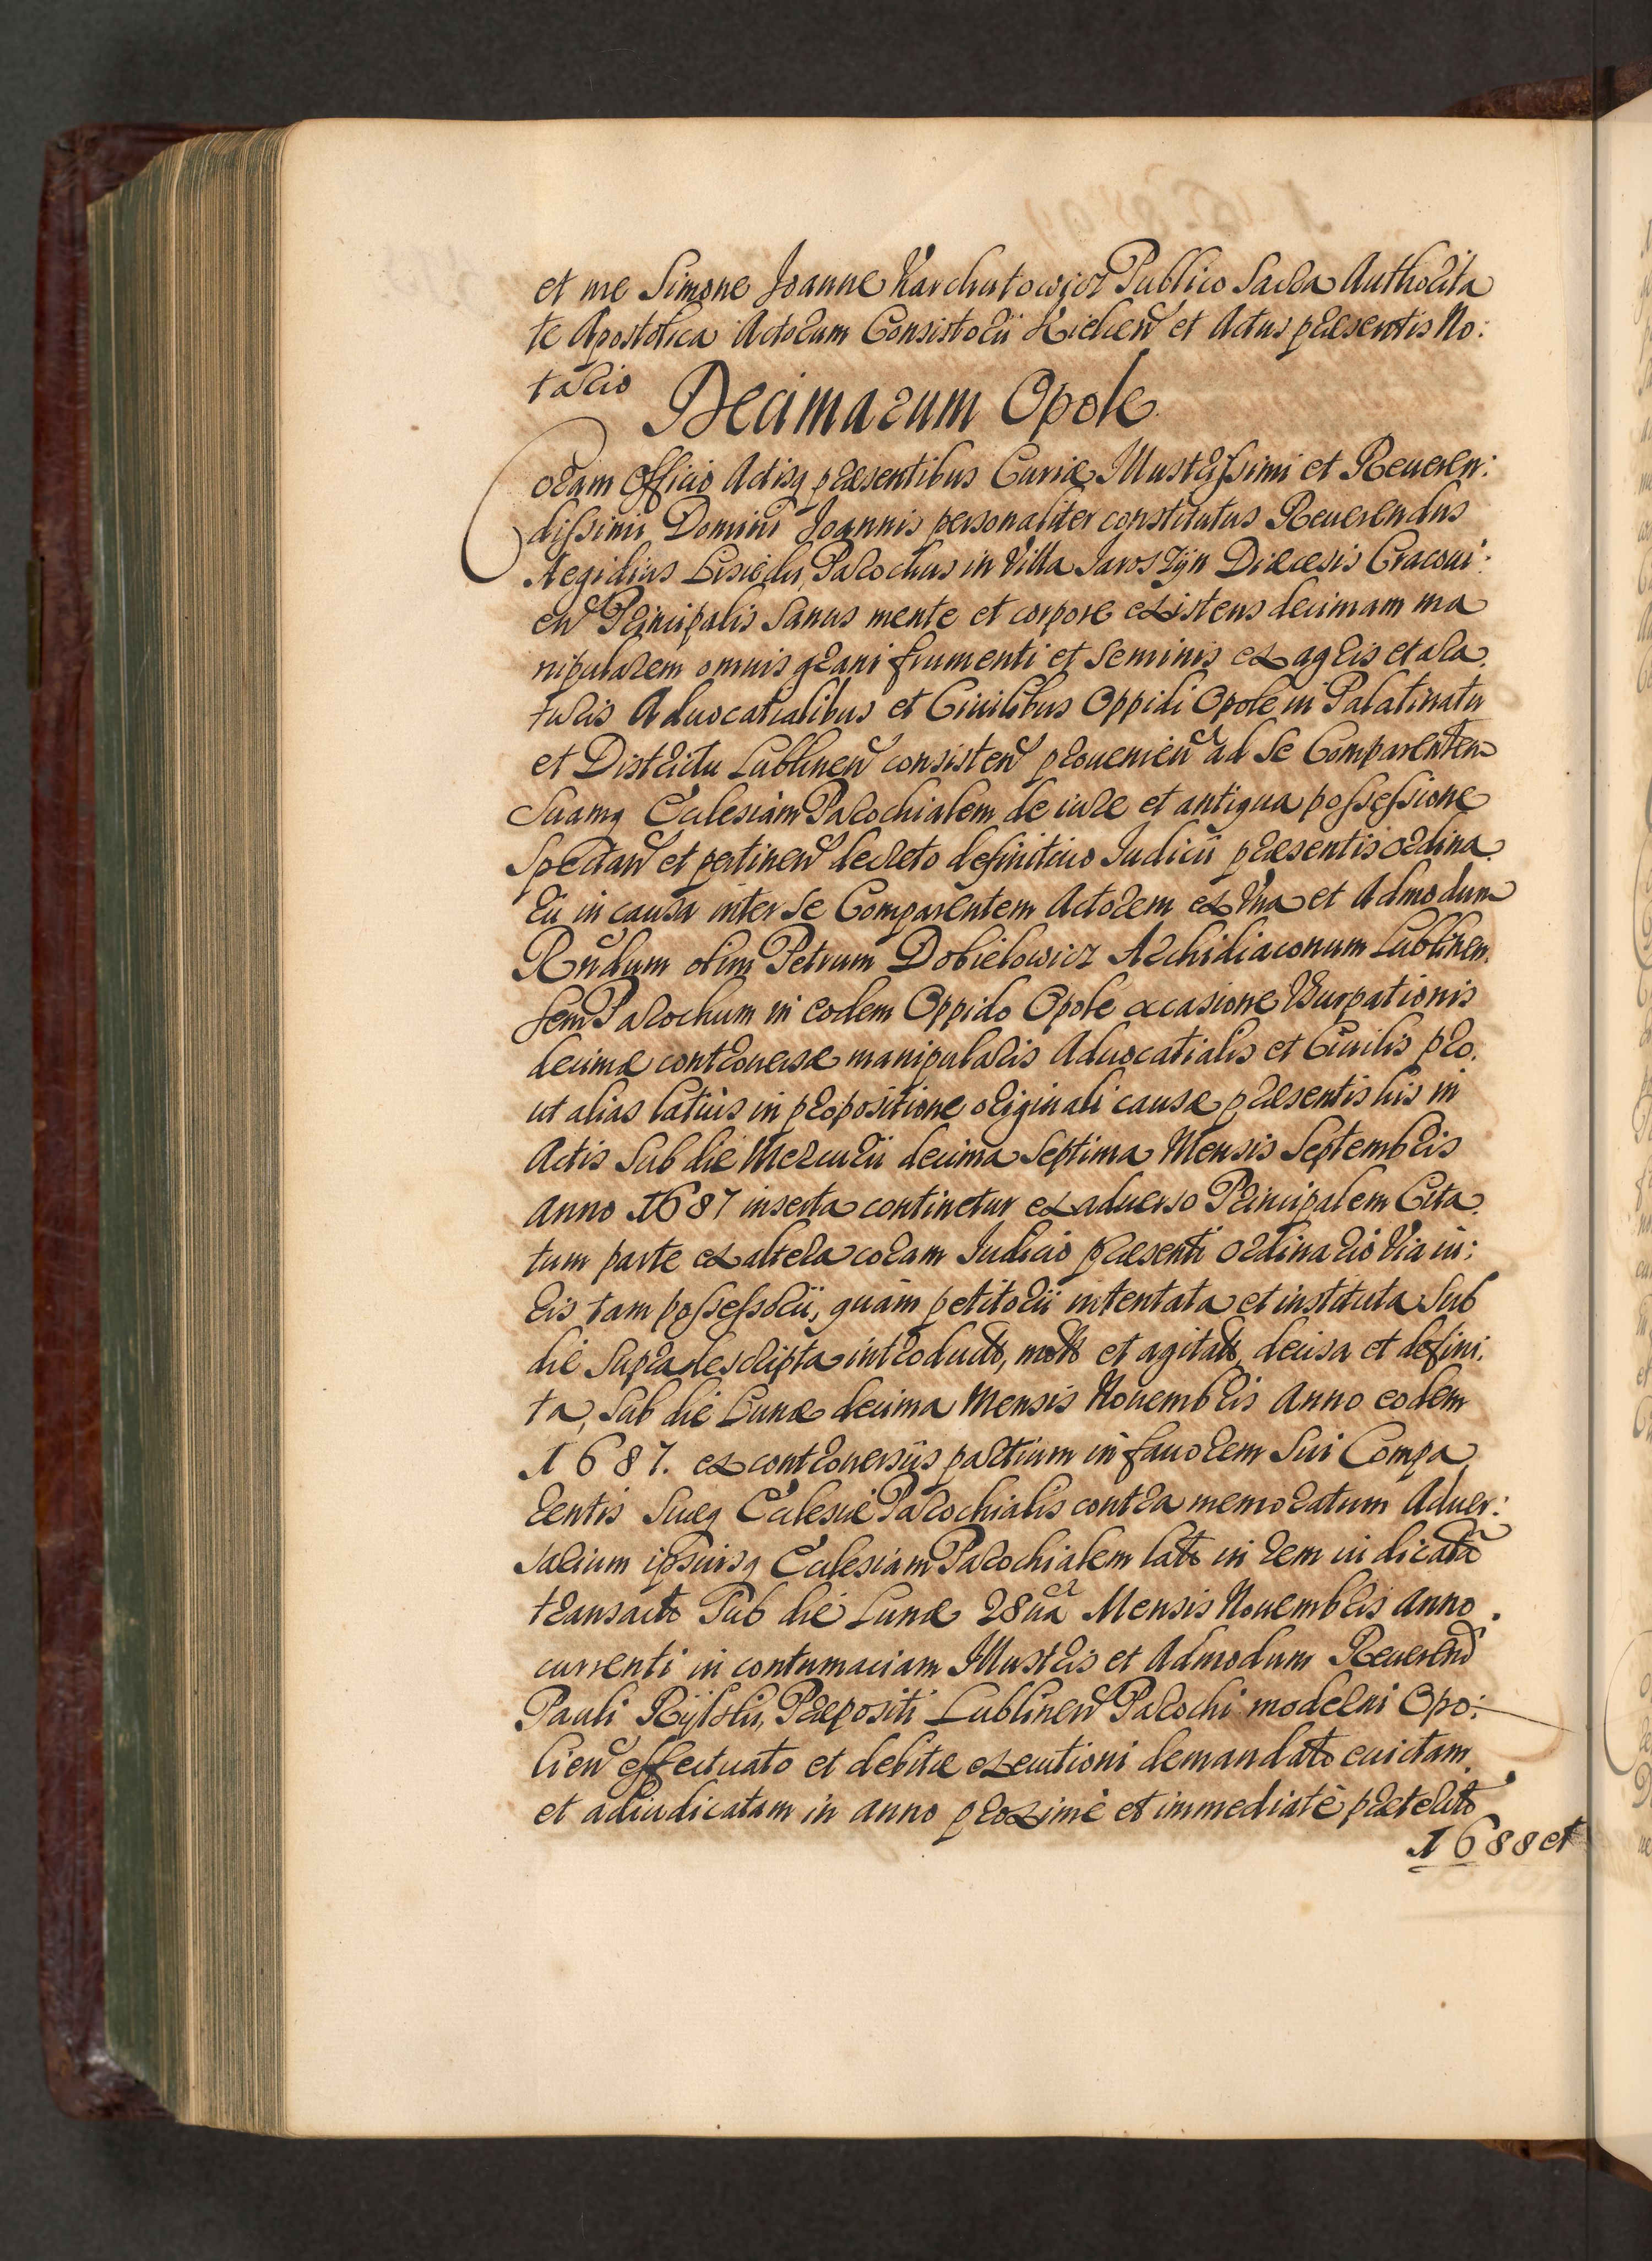 et me Simone Joanne Karchutowicz Publico Sacra Authorita
te Apostolica Actorum Consistorii Kielcen et Actus praesentis No:
tario
Decimarum Opole
Coram Officio Actisq praesentibus Curiae Illustrissimi et Reueren:
dissimi Domini Joannis personaliter constitutus Reuerendus
Aegidius Parochus in Villa Jaroszyn Diaecesis Cracoui:
en Principalis Sanus mente et corpore existens decimam ma
nipularem omnis grani frumenti et Seminis ex agris et ara
turis Aduocatialibus et Ciuilibus Oppidi Opole in Palatinatu
et Districtu Lublinen consisten prouenien ad Se Comparentem
Suamq Ecclesiam Parochialem de iure et antiqua possessione
Spectan et pertinen decreto definitiuo Judicii praesentis ordina
rii in causa inter Se Comparentem Actorem ex Vna et Admodum
Rndum olim Petrum Dobielowicz Archidiaconum Lublinen
sem Parochum in eodem Oppido Opole occasione Vsurpationis
decimae controuersae manipularis Aduocatialis et Ciuilis pro
ut alias latius in propositione originali causae praesentis his in
Actis Sub die Mercurii decima Septima Mensis Septembris
Anno 1687 inserta continetur ex aduerso Principalem Cita
tum parte ex altera coram Judicio praesenti ordinario Via iu:
ris tam possessorii, quam petitorii intentata et instituta Sub
die Supra descripta introducto, moto et agitato, decisa et defini
ta, Sub die Lunae decima Mensis Nouembris Anno eodem
1687. ex controuersiis partium in fauorem Sui Compa
rentis Suaeq Ecclesiae Parochialis contra memoratum Aduer:
sarium ipsiusq Ecclesiam Parochialem lato in rem iudicatam
transacto Sub die Lunae 28ua Mensis Nouembris Anno
currenti in contumaciam Illustris et Admodum Reuerend
Pauli Rylski, Praepositi Lublinen Parochi moderni Opo:
lien effectuato et debitae executioni demandato euictam
et adiudicatam in anno proxime et immediatè praeterito
1688 et